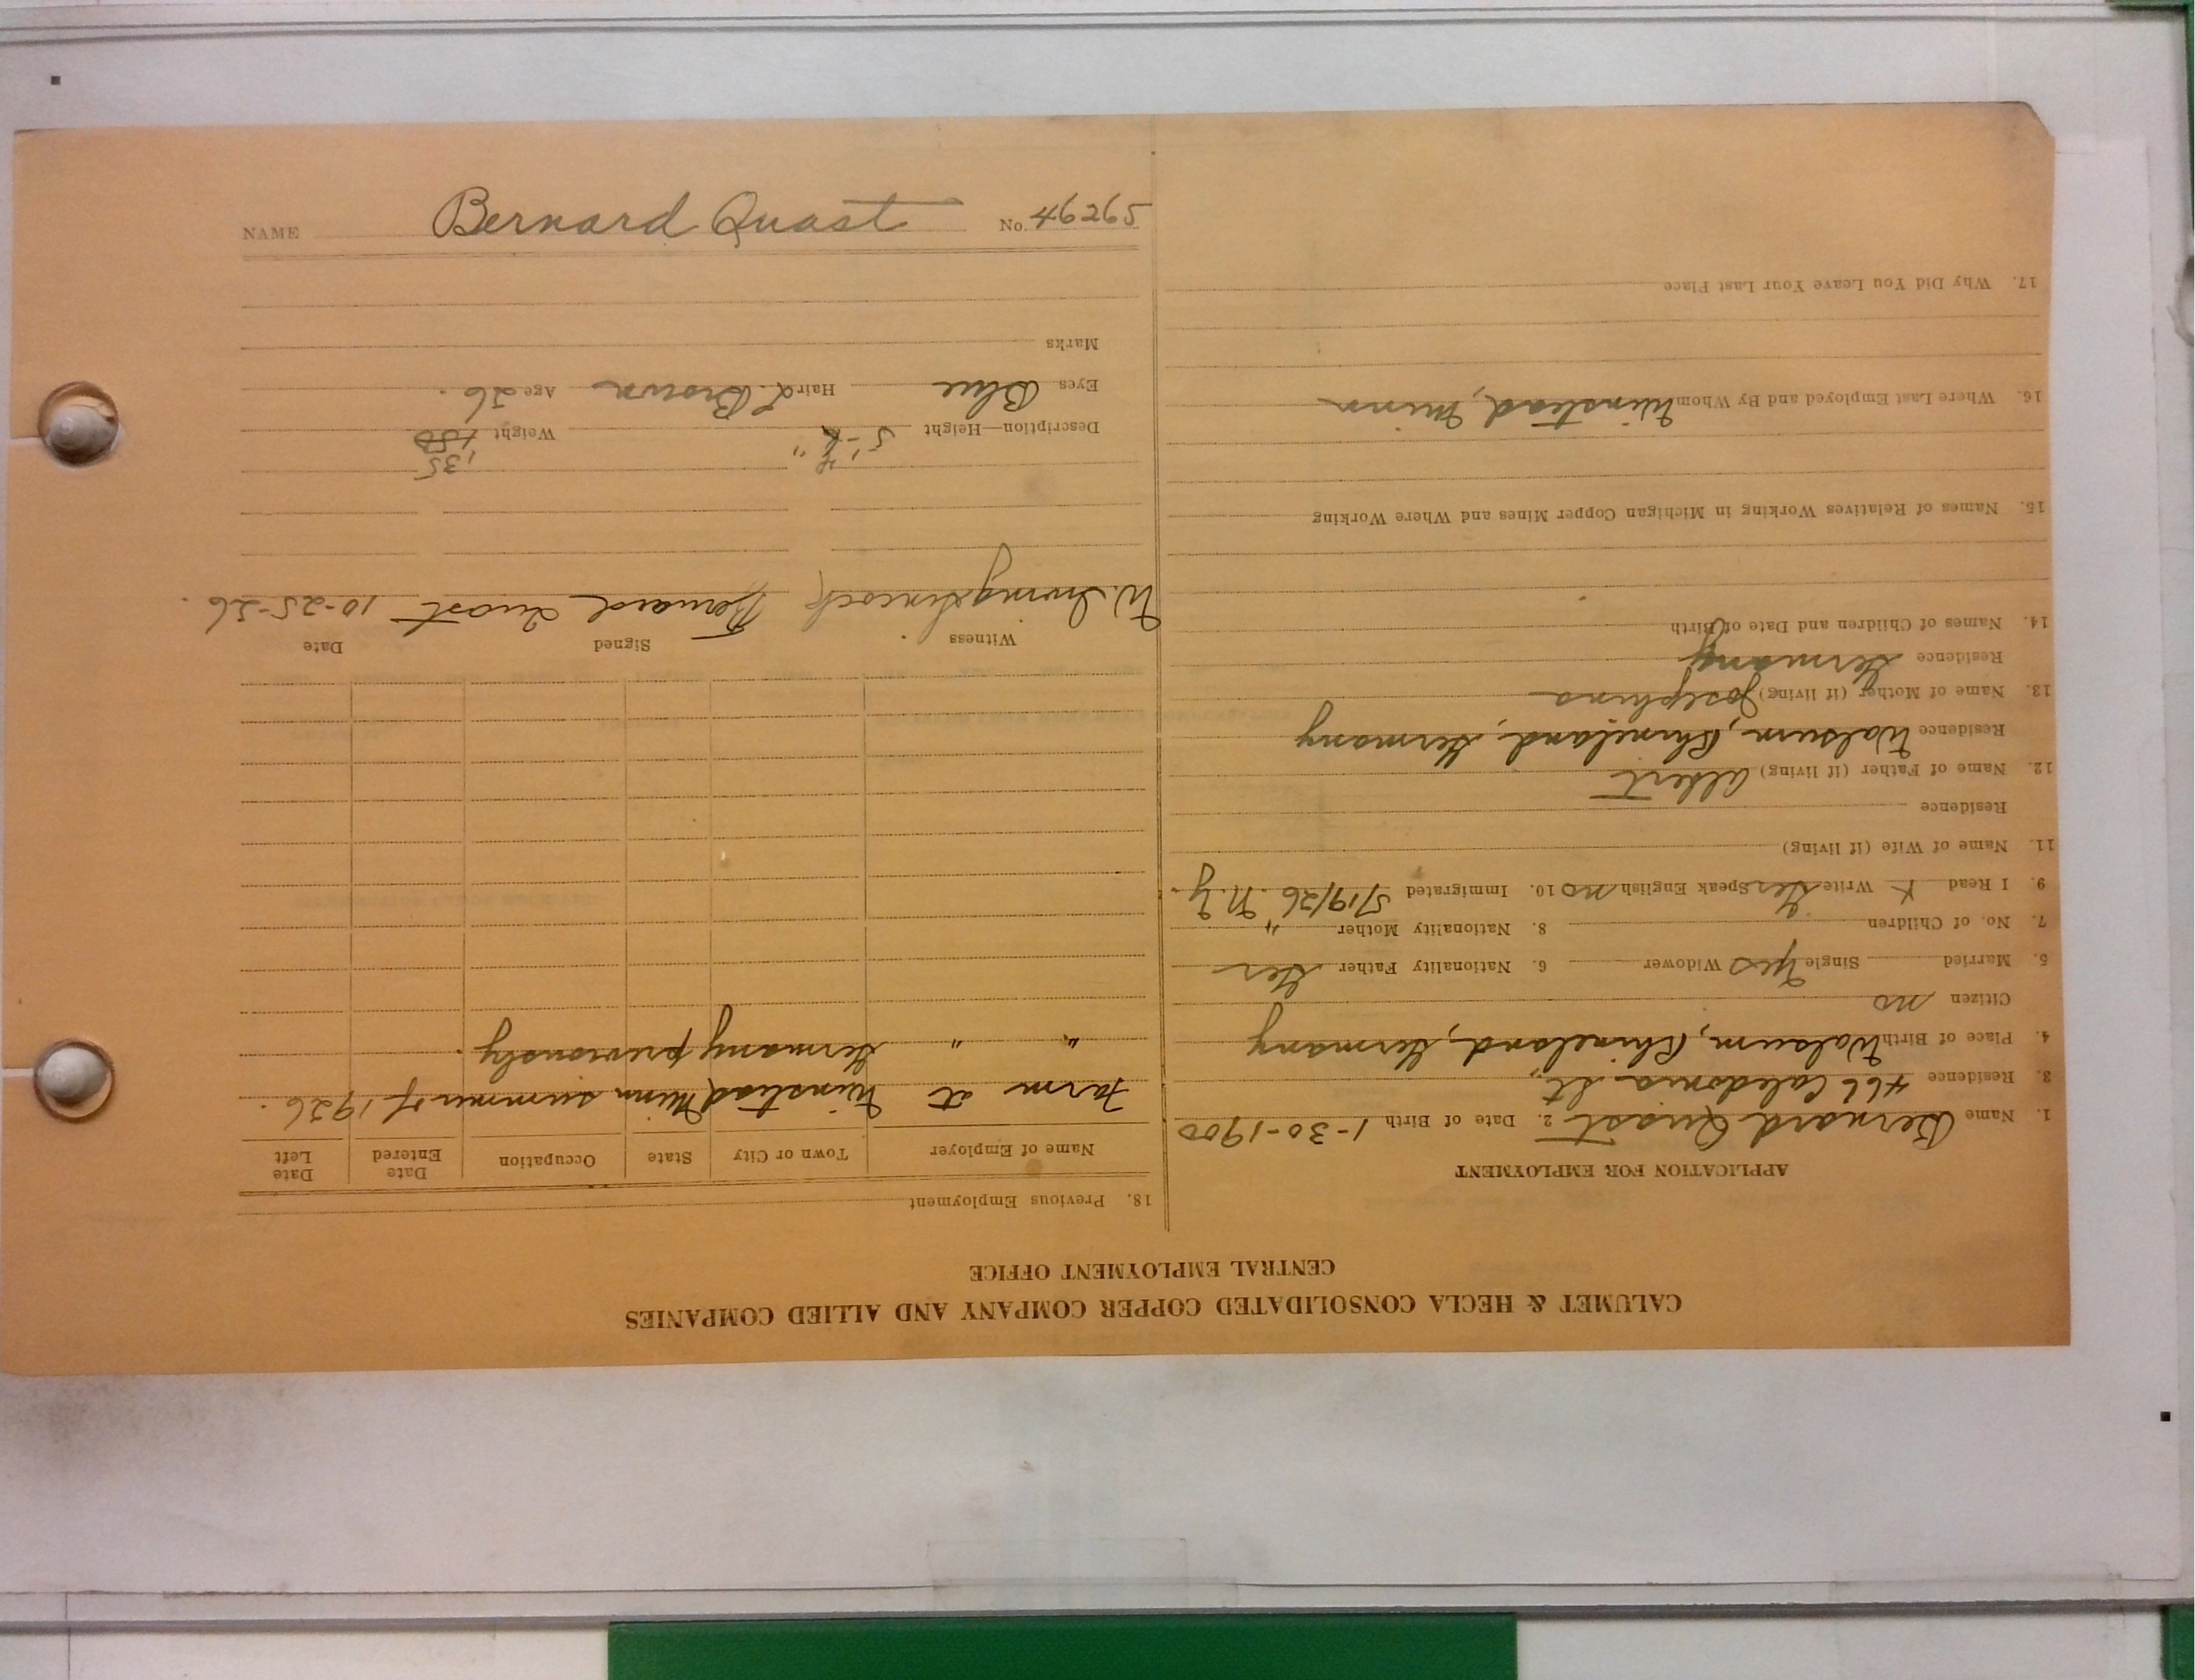 NAME Bernard Quast No. 46265
CALUMET & HECLA CONSOLIDATED COPPER COMPANY AND ALLIED COMPANIES
CENTRAL EMPLOYMENT OFFICE
APPLICATION FOR EMPLOYMENT
1. Name Bernard Quast 2. Date of Birth 1-30-1900
3. Residence 466 Caledonia St.,
4. Place of Birth Walsum, Rhineland, Germany
Citizen no
5. Married Single Yes Widower 6. Nationality Father Ger
7. No. of Children 8. Nationality Mother "
9. I Read X Write Ger Speak English no 10. Immigrated 5/19/26 N.Y.
11. Name of Wife (if living)
Residence
12. Name of Father (if living) Albert
Residence Walsum, Rhineland, Germany
13. Name of Mother (if living) Josephina
Residence Germany
14. Names of Children and Date of Birth
15. Names of Relatives Working in Michigan Copper Mines and Where Working
16. Where Last Employed and By Whom Winstead, Minn
17. Why Did You Leave Your Last Place
18. Previous Employment
Name of Employer Town or City State Occupation Date Entered Date Left
Farm at Winstead Minn summer of 1926.
" " Germany previously.
Witness Signed Date
W. Bernard Quast 10-25-26.
135
Description—Height 5' Weight 150
Eyes Blue Hair d. Brown Age 26.
Marks